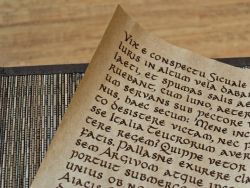 Vix e conspectu Siculae
luris in altum vela daba
laeti, et spumas salis aere
ruebant, cum Iuno, aeter
um servans sub pectore
nus haec secum: Mene in
to desistere victam, nec p
sse Italia Teucrorum aver
tere regem! Quippe veto
fatis. Pallasne exurere c
sem Argivom atque
portuit submerge
unius ob no
Aiacis